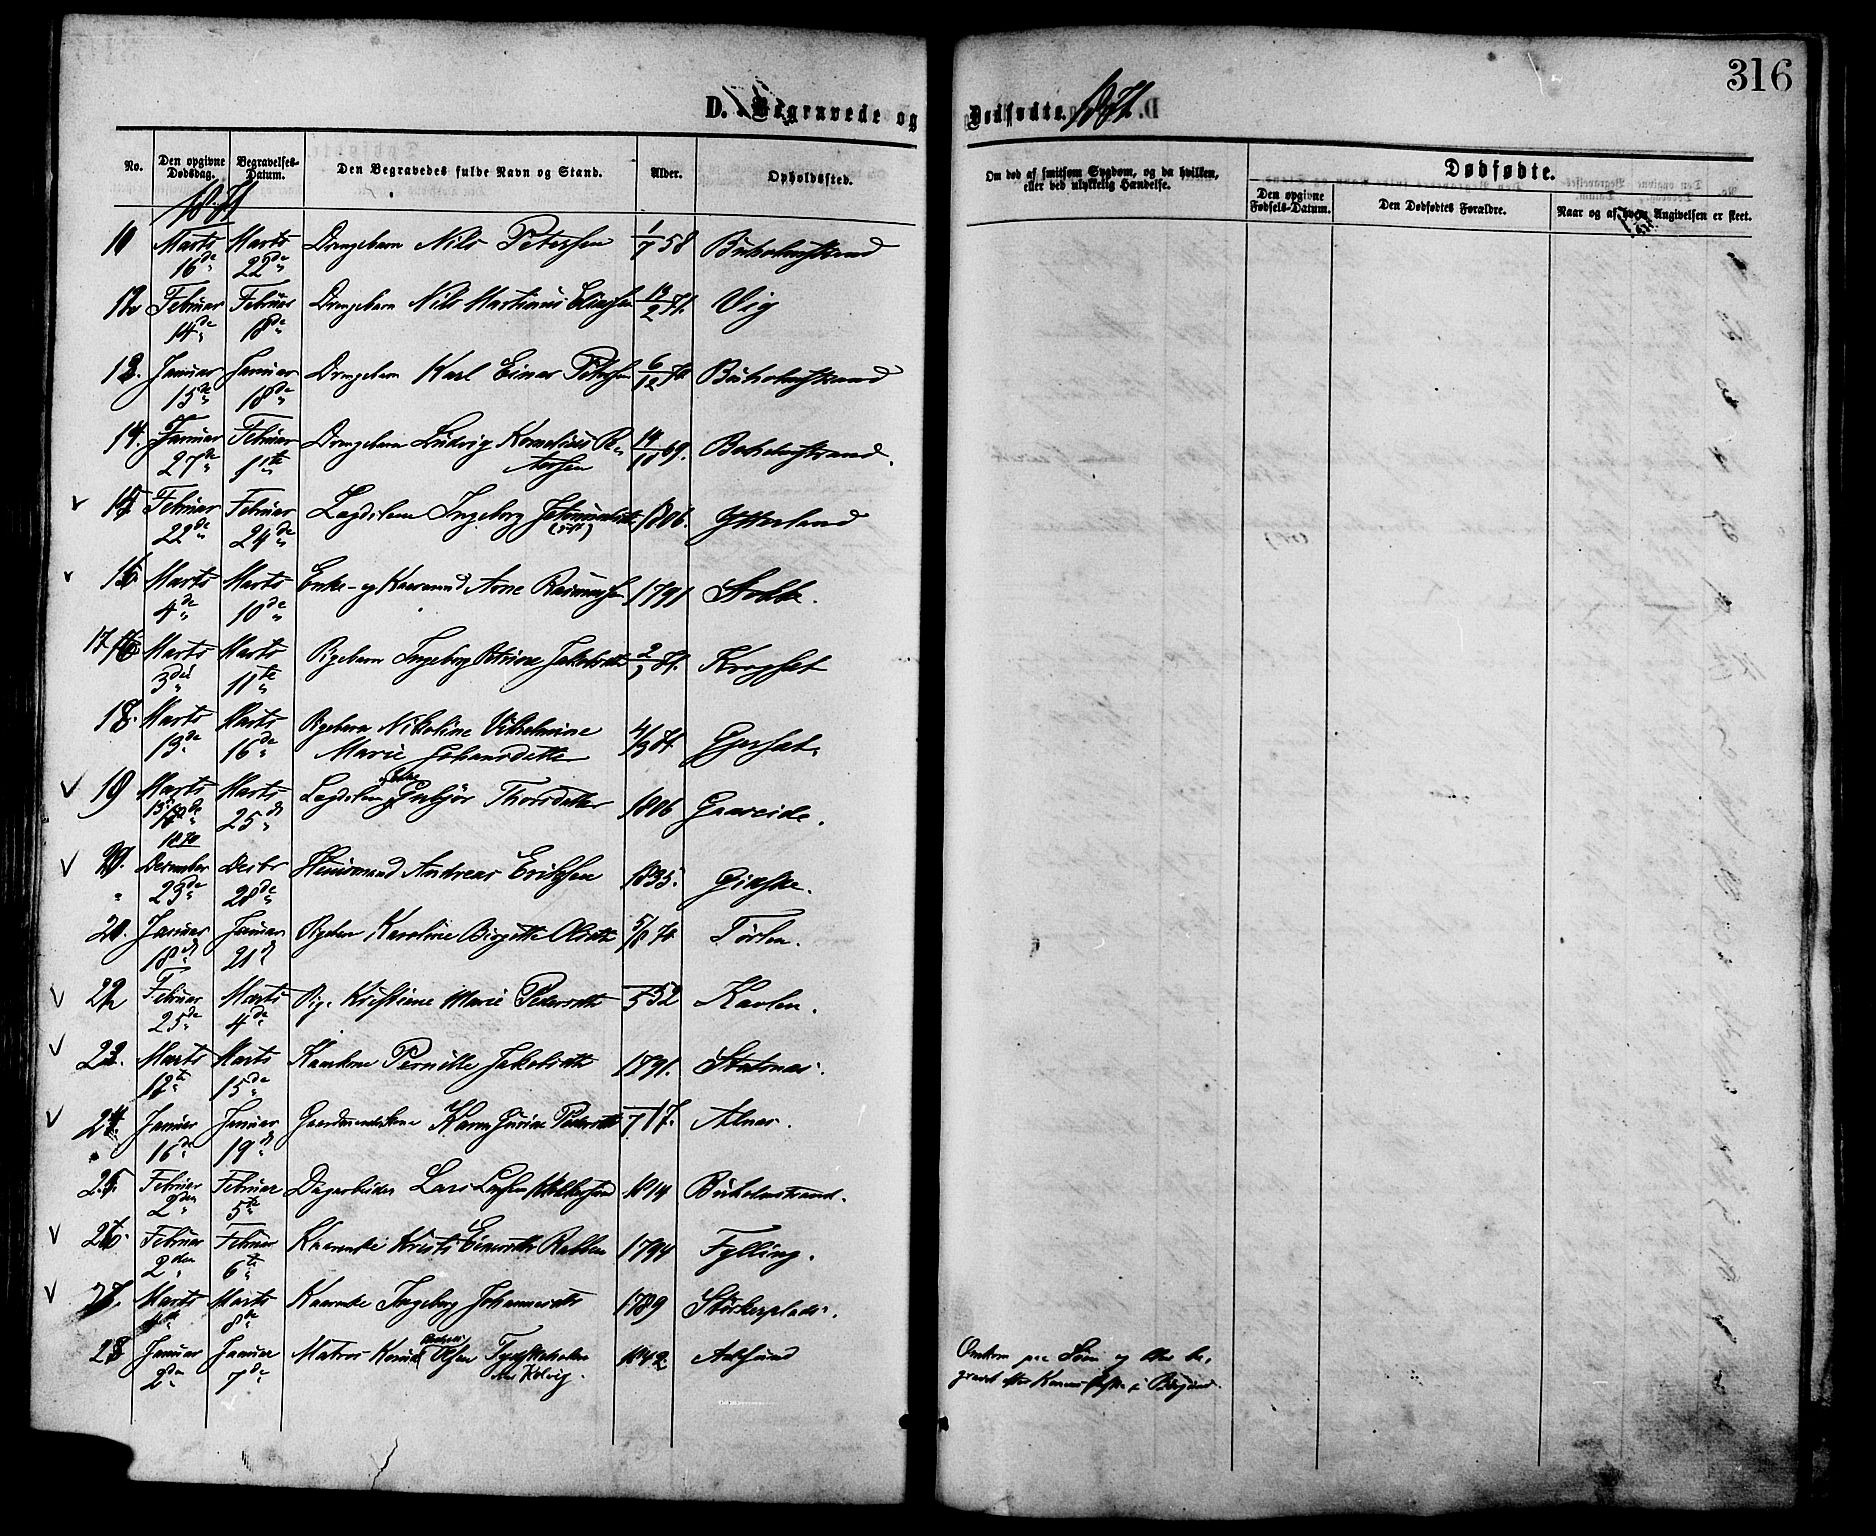 316
D. Begravede og Dødfødte. 1871.
No.
Den opgivne Dødsdag.
Begravelses-Datum.
Den Begravedes fulde Navn og Stand.
Alder.
Opholdssted.
Om død af smitsom Sygdom, og da hvilken, eller ved ulykkelig Hændelse.
Dødfødte.
Den opgivne Fødsels-Datum.
Den Dødfødtes Forældre.
Naar og af hvem Angivelsen er skeet.
1871
11 Marts 16de Marts 22de Drengebarn Nils Petersen 1/7 58 Buholmstrand
12 Februar 14de Februar 18de Drengebarn Nils Martinus 13/2 71. Vig
13. Januar 15de Januar 18de Drengebarn Karl Einar Petersen 6/12 70 Buholmstrand
14. Januar 27de Februar 1ste Drengebarn Ludvig Kornelius 14/10 69. Buholmstrand.
15 Februar 22de Februar 24de Lægdslem Ingeborg 1806. Ytterland
16 Marts 4de Marts 10de Enke- og Kaarmand Arne Rasmussen 1791 Stokke.
17. Marts 3die Marts 11te Pigebarn Ingeborg Petrine Jakobsdtr 2/1 71. Krogsæt
18. Marts 13de Marts 16de Pigebarn Nikoline Vilhelmine
Marie Johansdatter 4/3 71. Gjersæt.
19 Marts Marts 25de Lægdslem Gubjør Thorsdatter 1806 Gaaseide.
1870
20. December 23de Decbr 28de Huusmand Andreas Eriksen 1835. Giske.
21. Januar 18de Januar 21de Pigebarn Karoline Birgitte Olsdtr 5/8 70 Törlen.
22 Februar 25de Marts 4de Pige Kristine Marie Pedersdtr 5 52 Kavlen.
23. Marts 12te Marts 15de Kaarkone Pernille Jakobsdtr 1791. Statnes.
24. Januar 16de Januar 19de Gaardmandskone Karen Gurine Pedersdtr 7 17. Alnes.
25. Februar 2den Februar 5te Dagarbeider Lars 1814 Buholmstrand.
26. Februar 2den Februar 6te Kaarenke Kristi Einarsdtr Rabben 1794 Fylling.
27. Marts 4de Marts 8de Kaarenke Ingeborg Johannesdtr 1789 Störkerplads.
28 Januar 2den Januar 7de Matros Knud Olsen 1842 Aalesund
Omkom paa Söen og blev be-
gravet